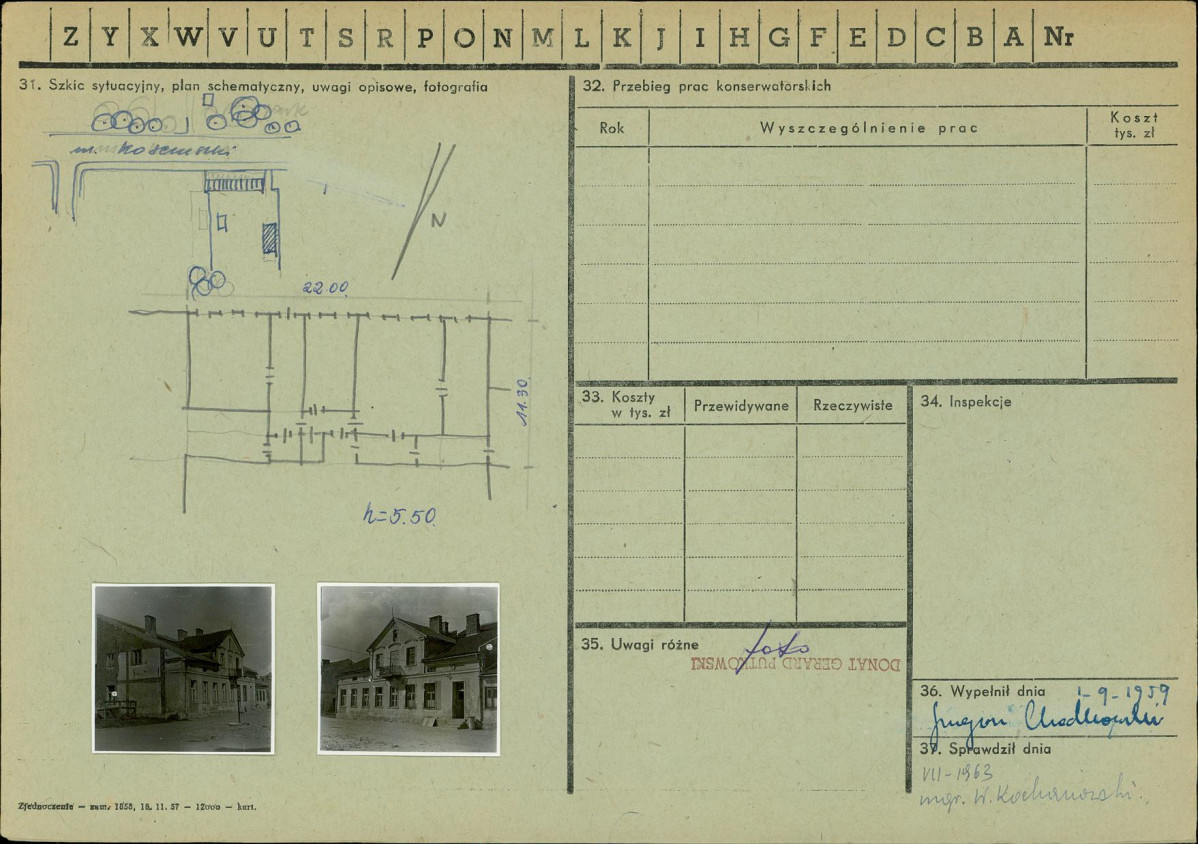 Z Y X W V U T S R P O N M L K J I H G F E D C B A Nr
31. Szkic sytuacyjny, plan schematyczny, uwagi opisowe, fotografia
park
N
22.00
11.30
h=5.50
Zjednoczenie — zam. 1058, 18. 11. 57 — 12000 — kart.
32. Przebieg prac konserwatorskich
Rok
Wyszczególnienie prac
Koszt
tys. zł
33. Koszty
w tys. zł
Przewidywane
Rzeczywiste
34. Inspekcje
35. Uwagi różne
foto
DONAT GERARD PUTKOWSKI
36. Wypełnił dnia 1-9-1959
37. Sprawdził dnia
VII-1963
mgr. W. Kochanowski.